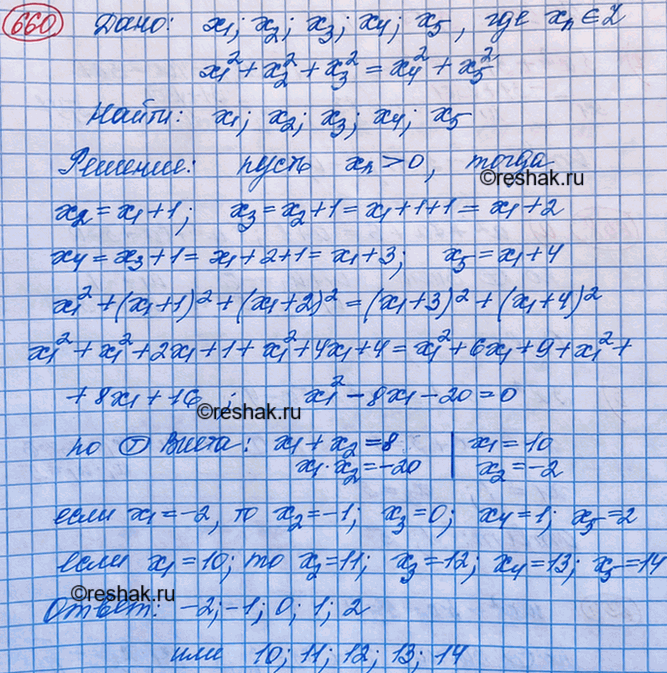 660 Дано: x₁; x₂; x₃; x₄; x₅, где xₙ ∈ Z
x₁² + x₂² + x₃² = x₄² + x₅²
Найти: x₁; x₂; x₃; x₄; x₅
Решение: пусть xₙ > 0, тогда
©reshak.ru
x₂ = x₁ + 1; x₃ = x₂ + 1 = x₁ + 1 + 1 = x₁ + 2
x₄ = x₃ + 1 = x₁ + 2 + 1 = x₁ + 3; x₅ = x₁ + 4
x₁² + (x₁ + 1)² + (x₁ + 2)² = (x₁ + 3)² + (x₁ + 4)²
x₁² + x₁² + 2x₁ + 1 + x₁² + 4x₁ + 4 = x₁² + 6x₁ + 9 + x₁² +
+ 8x₁ + 16; x₁² - 8x₁ - 20 = 0
©reshak.ru
по Т Виета: x₁ + x₂ = 8 | x₁ = 10
x₁ · x₂ = -20 | x₂ = -2
если x₁ = -2, то x₂ = -1; x₃ = 0; x₄ = 1; x₅ = 2
если x₁ = 10; то x₂ = 11; x₃ = 12; x₄ = 13; x₅ = 14
©reshak.ru
Ответ: -2; -1; 0; 1; 2
или 10; 11; 12; 13; 14